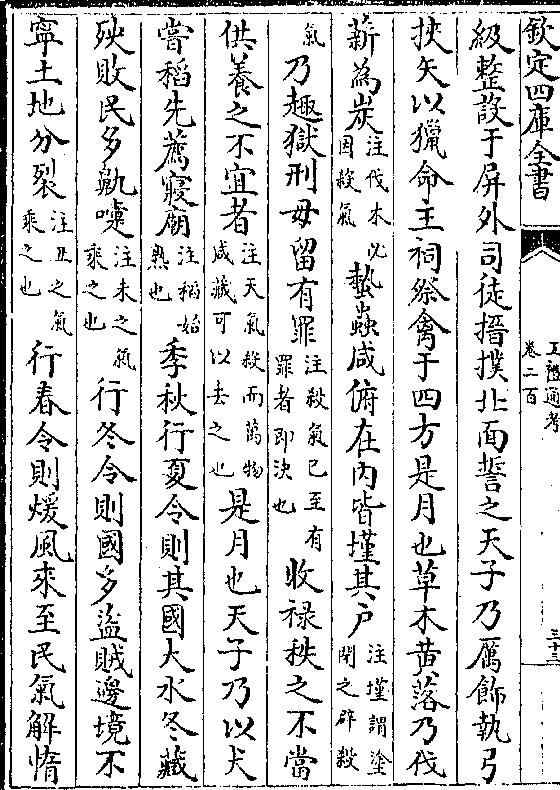 欽定四庫全書
五禮通考
卷二百
三十三
級整設于屏外司徒搢撲北面誓之天子乃厲飾執弓
挾矢以獵命主祠祭禽于四方是月也草木黄落乃伐
薪為炭注伐木必因殺氣蟄蟲咸俯在內皆墐其戶注墐謂塗閉之辟殺
氣乃趣獄刑毋留有罪注殺氣已至有罪者即決也收禄秩之不當
供養之不宜者注天氣殺而萬物咸藏可以去之也是月也天子乃以犬
嘗稻先薦寢廟注稻始熟也季秋行夏令則其國大水冬藏
殃敗民多鼽嚏注未之氣乘之也行冬令則國多盜賊邊境不
寧土地分裂注丑之氣乘之也行春令則煖風來至民氣解惰